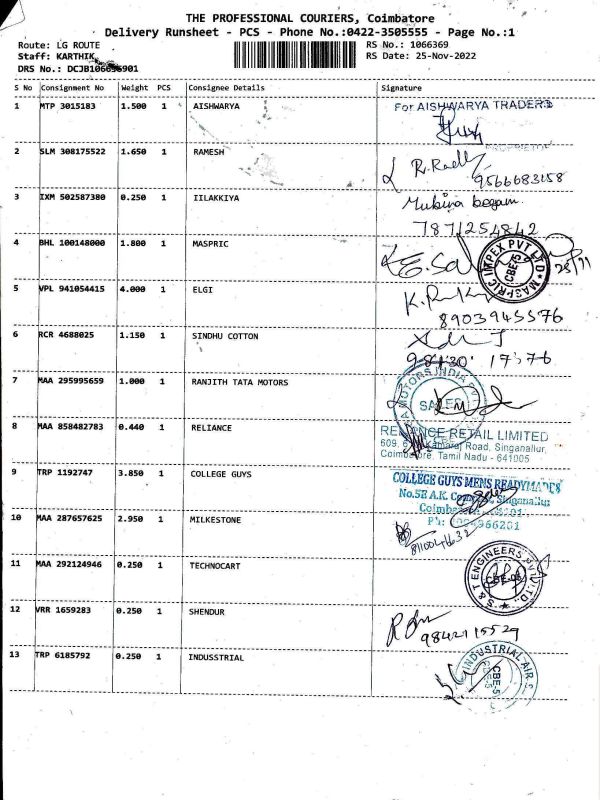 THE PROFESSIONAL COURIERS, Coimbatore
Delivery Runsheet - PCS - Phone No.:0422-3505555 - Page No.:1
Route: LG ROUTE
RS No.: 1066369
Staff: KARTHIK
RS Date: 25-Nov-2022
DRS No.:
S No Consignment No Weight PCS Consignee Details Signature
1 MTP 3015183 1.500 1 AISHWARYA
For AISHWARYA TRADERS
PROPRIETOR
2 SLM 308175522 1.650 1 RAMESH
9566683158
3 IXM 502587380 0.250 1 IILAKKIYA
Mubina begam.
7871254842
4 BHL 100148000 1.800 1 MASPRIC
MASPRIC IMPEX PVT LTD
CBE-5
5 VPL 941054415 4.000 1 ELGI
8903945576
6 RCR 4688025 1.150 1 SINDHU COTTON
7 MAA 295995659 1.000 1 RANJITH TATA MOTORS
SALES
8 MAA 858482783 0.440 1 RELIANCE
RELIANCE RETAIL LIMITED
Road, Singanallur,
Coimbatore, Tamil Nadu - 641005
9 TRP 1192747 3.850 1 COLLEGE GUYS
COLLEGE GUYS MENS READYMADES
No.5E A.K. Singanallur
10 MAA 287657625 2.950 1 MILKESTONE
11 MAA 292124946 0.250 1 TECHNOCART
S & T ENGINEERS PVT LTD
12 VRR 1659283 0.250 1 SHENDUR
9842115529
13 TRP 6185792 0.250 1 INDUSSTRIAL
INDUSTRIAL AIR
CBE-5